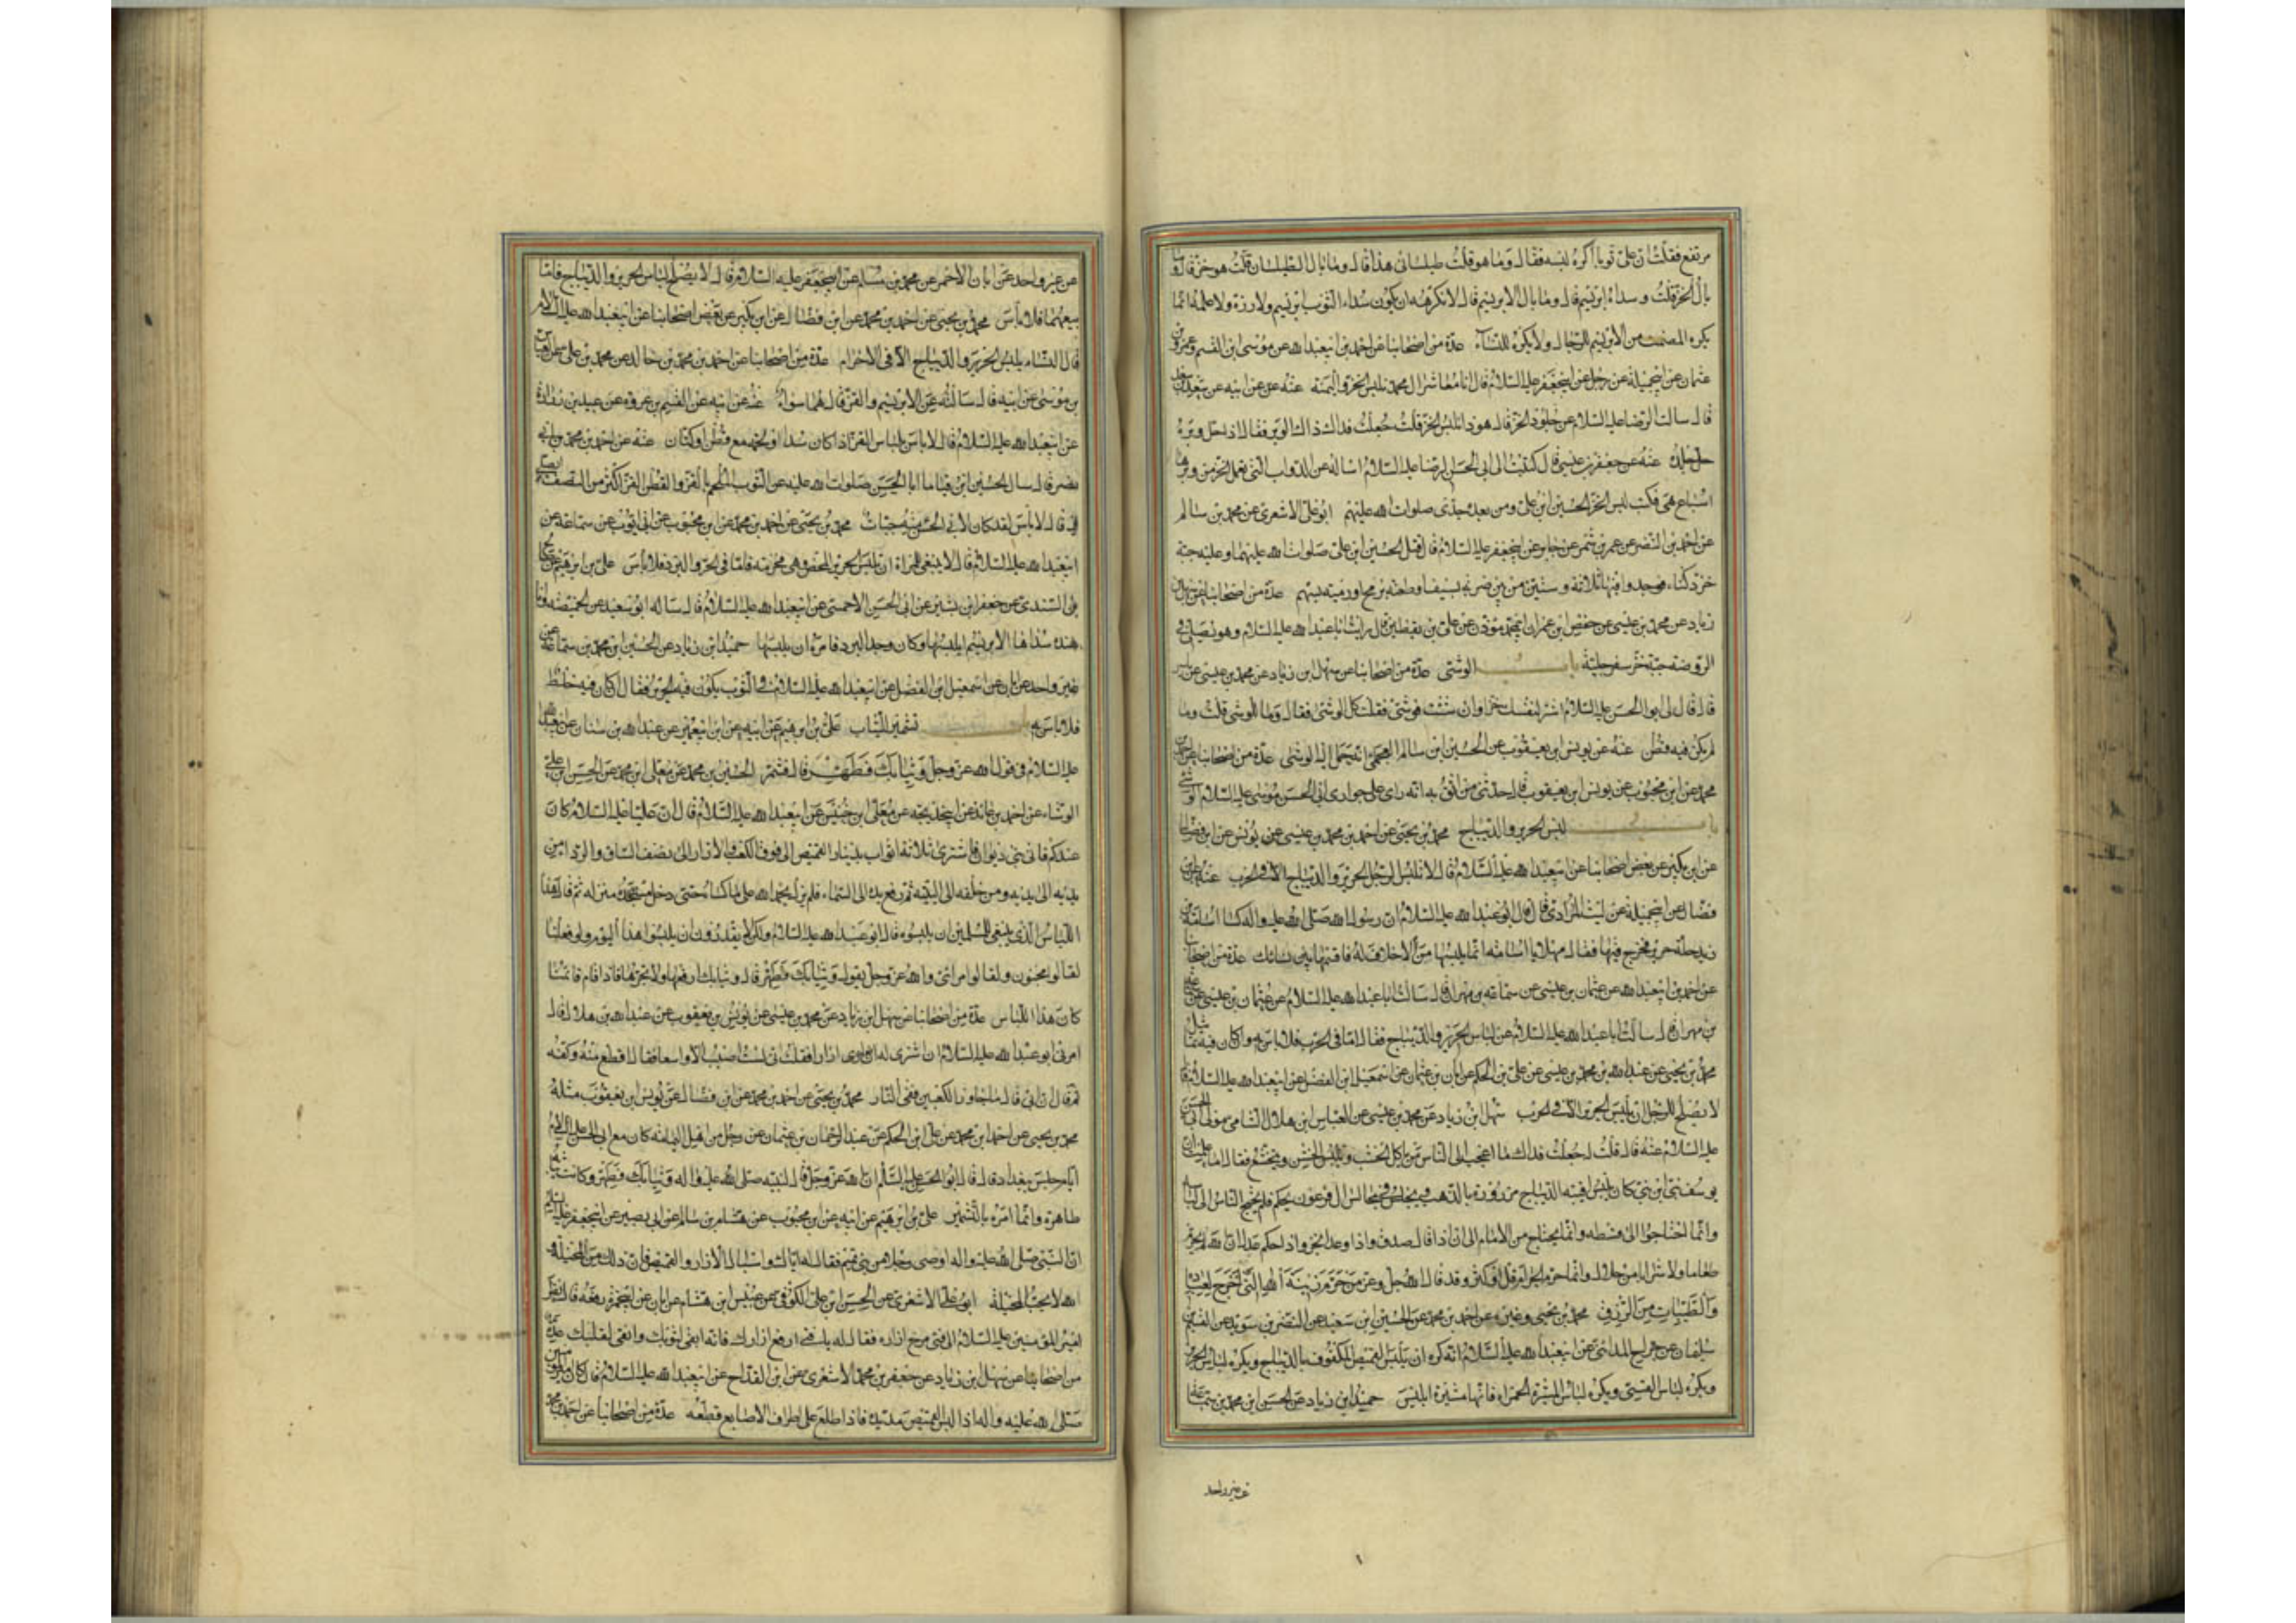 مرتفع فقلت ان على ثوبا اكره لبسه فقال وما هو قلت طيلسانى هذا قال وما بال الطيلسان قلت هو خز قال وما
بال الخز قلت وسداه ابريسم قال وما بال الابريسم قال لا نكره ان يكون سداء الثوب ابريسم ولا زره ولا علمه انما
يكره المصمت من الابريسم للرجال ولا يكره للنساء عدة من اصحابنا عن احمد بن ابيعبد الله عن موسى ابن القسم وعمرو بن
عثمان عن ابيجميلة عن رجل عن ابيجعفر عليه السلام قال انا معاشر ال محمد نلبس الخز واليمنة عنه عن ابيه عن سعد بن سعد
قال سالت الرضا عليه السلام عن جلود الخز فقال هو ذا نلبس الخز قلت جعلت فداك ذاك الوبر فقال اذا حل وبره
حل جلده عنه عن جعفر بن عيسى قال كتبت الى ابى الحسن الرضا عليه السلام اساله عن الدواب التى يعمل الخز من وبرها
اسباع هى فكتب لبس الخز الحسين ابن على ومن بعده جدى صلوات الله عليهم ابو على الاشعرى عن محمد بن سالم
عن احمد بن النضر عن عمرو بن شمر عن جابر عن ابيجعفر عليه السلام قال قتل الحسين ابن على صلوات الله عليهما وعليه جبة
خز دكناء فوجدوا فيها ثلاثة وستين من بين ضربة بسيف او طعنة برمح او رمية بسهم عدة من اصحابنا عن سهل بن
زياد عن محمد بن عيسى عن حفص ابن عمر ابى محمد مؤذن على بن يقطين قال رايت ابا عبد الله عليه السلام وهو يصلى فى
الروضة جبة خز سفرجلية باب الوشى عدة من اصحابنا عن سهل ابن زياد عن محمد بن عيسى عن ياسر
قال قال لى ابو الحسن عليه السلام اشتر لنفسك خزا وان شئت فوشى فقلت كل الوشى فقال وما الوشى قلت وما
لم يكن فيه قطن عنه عن يونس ابن يعقوب عن الحسين ابن سالم العجلى انه حمل اليه الوشى عدة من اصحابنا عن احمد بن
محمد عن ابن محبوب عن يونس ابن يعقوب قال حدثنى من اثق به انه راى على جوارى ابى الحسن موسى عليه السلام الوشى
باب لبس الحرير والديباج محمد بن يحيى عن احمد بن محمد بن عيسى عن يونس عن ابن فضال
عن ابن بكير عن بعض اصحابنا عن ابيعبد الله عليه السلام قال لا يلبس الرجل الحرير والديباج الا فى الحرب عنه عن ابن
فضال عن ابيجميلة عن ليث المرادى قال قال ابو عبد الله عليه السلام ان رسول الله صلى الله عليه واله كسا اسامة بن
زيد حلة حرير فخرج فيها فقال مهلا يا اسامة انما يلبسها من لا خلاق له فاقسمها بين نسائك عدة من اصحابنا
عن احمد بن ابيعبد الله عن عثمان بن عيسى عن سماعة بن مهران قال سالت ابا عبد الله عليه السلام عن عثمان بن عيسى عن سماعة
بن مهران قال سالت ابا عبد الله عليه السلام عن لباس الحرير والديباج فقال اما فى الحرب فلا باس به وان كان فيه تماثيل
محمد بن يحيى عن عبد الله بن محمد بن عيسى عن على بن الحكم عن ابان بن عثمان عن اسمعيل ابن الفضل عن ابيعبد الله عليه السلام قال
لا يصلح للرجل ان يلبس الحرير الا فى الحرب سهل ابن زياد عن محمد بن عيسى عن العباس ابن هلال الشامى مولى ابى الحسن
عليه السلام عنه قال قلت له جعلت فداك ما اعجب الى الناس من ياكل الجشب ويلبس الخشن ويتخشع فقال اما علمت ان
يوسف نبى ابن نبى كان يلبس اقبية الديباج مزرورة بالذهب ويجلس فى مجالس ال فرعون يحكم فلم يحتج الناس الى لباسه
وانما احتاجوا الى قسطه وانما يحتاج من الامام الى ان اذا قال صدق واذا وعد انجز واذا حكم عدل ان الله لم يحرم
طعاما ولا شرابا من حلال وانما حرم الحرام قل او كثر وقد قال الله جل وعز من حرم زينة الله التى اخرج لعباده
والطيبات من الرزق محمد بن يحيى وغيره عن احمد بن محمد عن الحسين ابن سعيد عن النضر بن سويد عن القسم بن
سليمان عن جراح المدائنى عن ابيعبد الله عليه السلام انه كره ان يلبس القميص المكفوف بالديباج ويكره لباس الحرير
ويكره لباس القسى ويكره لباس الميثرة الحمراء فانها ميثرة ابليس حميد ابن زياد عن الحسن ابن محمد بن سماعة
عن غير واحد
عن غير واحد عن ابان الاحمر عن محمد بن مسلم عن ابيجعفر عليه السلام قال لا يصلح لباس الحرير والديباج فاما
بيعهما فلا باس محمد بن يحيى عن احمد بن محمد عن ابن فضال عن ابن بكير عن بعض اصحابنا عن ابيعبد الله عليه السلام
قال النساء يلبس الحرير والديباج الا فى الاحرام عدة من اصحابنا عن احمد بن محمد بن خالد عن محمد بن على عن عباس
بن موسى عن ابيه قال سالته عن الابريسم والقز قال هما سواء عنه عن ابيه عن القسم بن عروه عن عبيد بن زرارة
عن ابيعبد الله عليه السلام قال لا باس بلباس القز اذا كان سداه او لحمته مع قطن او كتان عنه عن احمد بن محمد بن ابى
نصر قال سال الحسين ابن قياما ابا الحسن صلوات الله عليه عن الثوب الملحم بالقز والقطن القز اكثر من النصف ايصلى
فيه قال لا باس لقد كان لابى الحسن منه جبات محمد بن يحيى عن احمد بن محمد عن ابن محبوب عن ابى ايوب عن سماعة عن
ابيعبد الله عليه السلام قال لا ينبغى للمراة ان تلبس الحرير المحض وهى محرمة فاما فى الحر والبرد فلا باس على بن ابرهيم عن صالح
بن السندى عن جعفر ابن بشير عن ابى الحسن الاحمسى عن ابيعبد الله عليه السلام قال ساله ابو سعيد عن الخميصة وانا
عنده سداها الابريسم ايلبسها وكان وجد البرد فامره ان يلبسها حميد ابن زياد عن الحسن ابن محمد بن سماعة عن
غير واحد عن ابان عن اسمعيل ابن الفضل عن ابيعبد الله عليه السلام فى الثوب يكون فيه الحرير فقال ان كان فيه خلط
فلا باس به باب تشمير الثياب على بن ابرهيم عن ابيه عن ابن ابيعمير عن عبد الله بن سنان عن ابيعبد الله
عليه السلام فى قول الله عز وجل وثيابك فطهر قال فشمر الحسين بن محمد عن معلى ابن محمد عن الحسن ابن على
الوشاء عن احمد بن عائذ عن ابيخديجه عن معلى ابن خنيس عن ابيعبد الله عليه السلام قال ان عليا عليه السلام كان
عندكم فاتى بنى ديوان فاشترى ثلاثة اثواب بدينار القميص الى فوق الكعب والازار الى نصف الساق والرداء من
يديه الى ثدييه ومن خلفه الى اليتيه ثم رفع يده الى السماء فلم يزل يحمد الله على ما كساه حتى دخل منزله ثم قال هذا
اللباس الذى ينبغى للمسلمين ان يلبسوه قال ابو عبد الله عليه السلام ولكن لا يقدرون ان يلبسوا هذا اليوم ولو فعلنا
لقالوا مجنون ولقالوا مرائى والله عز وجل يقول وثيابك فطهر قال وثيابك ارفعها ولا تجرها فاذا قام قائمنا
كان هذا اللباس عدة من اصحابنا عن سهل ابن زياد عن محمد بن عيسى عن يونس بن يعقوب عن عبد الله بن هلال قال
امرنى ابو عبد الله عليه السلام ان اشترى له ازارا فقلت انى لست اصيب الا واسعا فقال اقطع منه وكفه
ثم قال ان ابى قال ما جاوز الكعبين ففى النار محمد بن يحيى عن احمد بن محمد عن ابن فضال عن يونس ابن يعقوب مثله
محمد بن يحيى عن احمد ابن محمد عن على ابن الحكم عن عبد الرحمان بن عثمان عن رجل من اهل اليمامة كان مع ابى الحسن عليه السلام
ايام حبس ببغداد قال قال ابو الحسن عليه السلام ان الله عز وجل قال لنبيه صلى الله عليه واله وثيابك فطهر وكانت ثيابه
طاهرة وانما امره بالتشمير على بن ابرهيم عن ابيه عن ابن محبوب عن هشام بن سالم عن ابى بصير عن ابيجعفر عليه السلام
ان النبى صلى الله عليه واله اوصى رجلا من بنى تميم فقال له اياك واسبال الازار والقميص فان ذلك من المخيلة و
الله لا يحب المخيلة ابو على الاشعرى عن الحسن ابن على الكوفى عن عبيس ابن هشام عن ابان عن ابيحمزة رفعه قال نظر
امير المؤمنين عليه السلام الى فتى مرخ ازاره فقال له يا فتى ارفع ازارك فانه ابقى لثوبك وانقى لقلبك عدة
من اصحابنا عن سهل ابن زياد عن جعفر بن محمد الاشعرى عن ابن القداح عن ابيعبد الله عليه السلام قال كان
صلى الله عليه واله اذا لبس القميص مد يده فاذا طلع على اطراف الاصابع قطعه عدة من اصحابنا عن احمد بن محمد